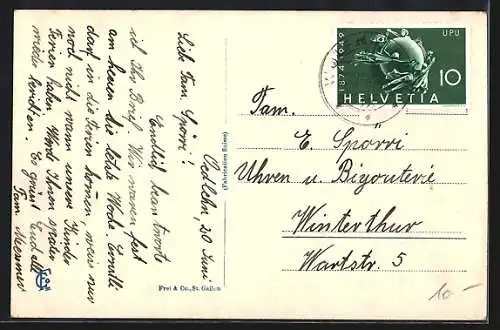 Oedlehn, 20 Juni
Lieb. Fam. Spörri!
Endlich beantworte
ich Ihr Brief. Wir waren fast
am heuen die letzte Woche. Ewalt
darf in die Ferien kommen, weis nur
noch nicht wann unsere Kinder
Ferien haben. Werde Ihnen später
wieder berichten. Es grüsst Euch all
Fam. Messmer
(Fabrication Suisse)
Frei & Co., St. Gallen
1874-1949
UPU
10
HELVETIA
Fam.
E. Spörri
Uhren u. Bigouterie
Winterthur
Wartstr. 5
10.-